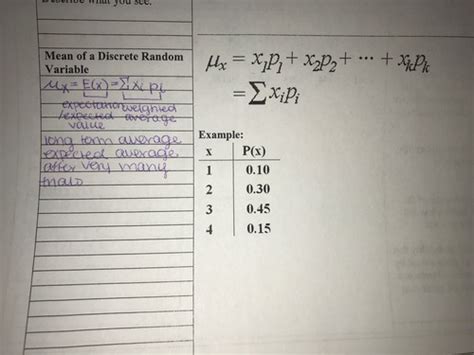 Describe what you see.
Mean of a Discrete Random
Variable
μx = E(x) = Σ xi pi
expectation weighted
/expected average
value
long term average
expected average
after very many
trials
μx = x1p1 + x2p2 + ⋯ + xkpk
= ∑xipi
Example:
x P(x)
1 0.10
2 0.30
3 0.45
4 0.15